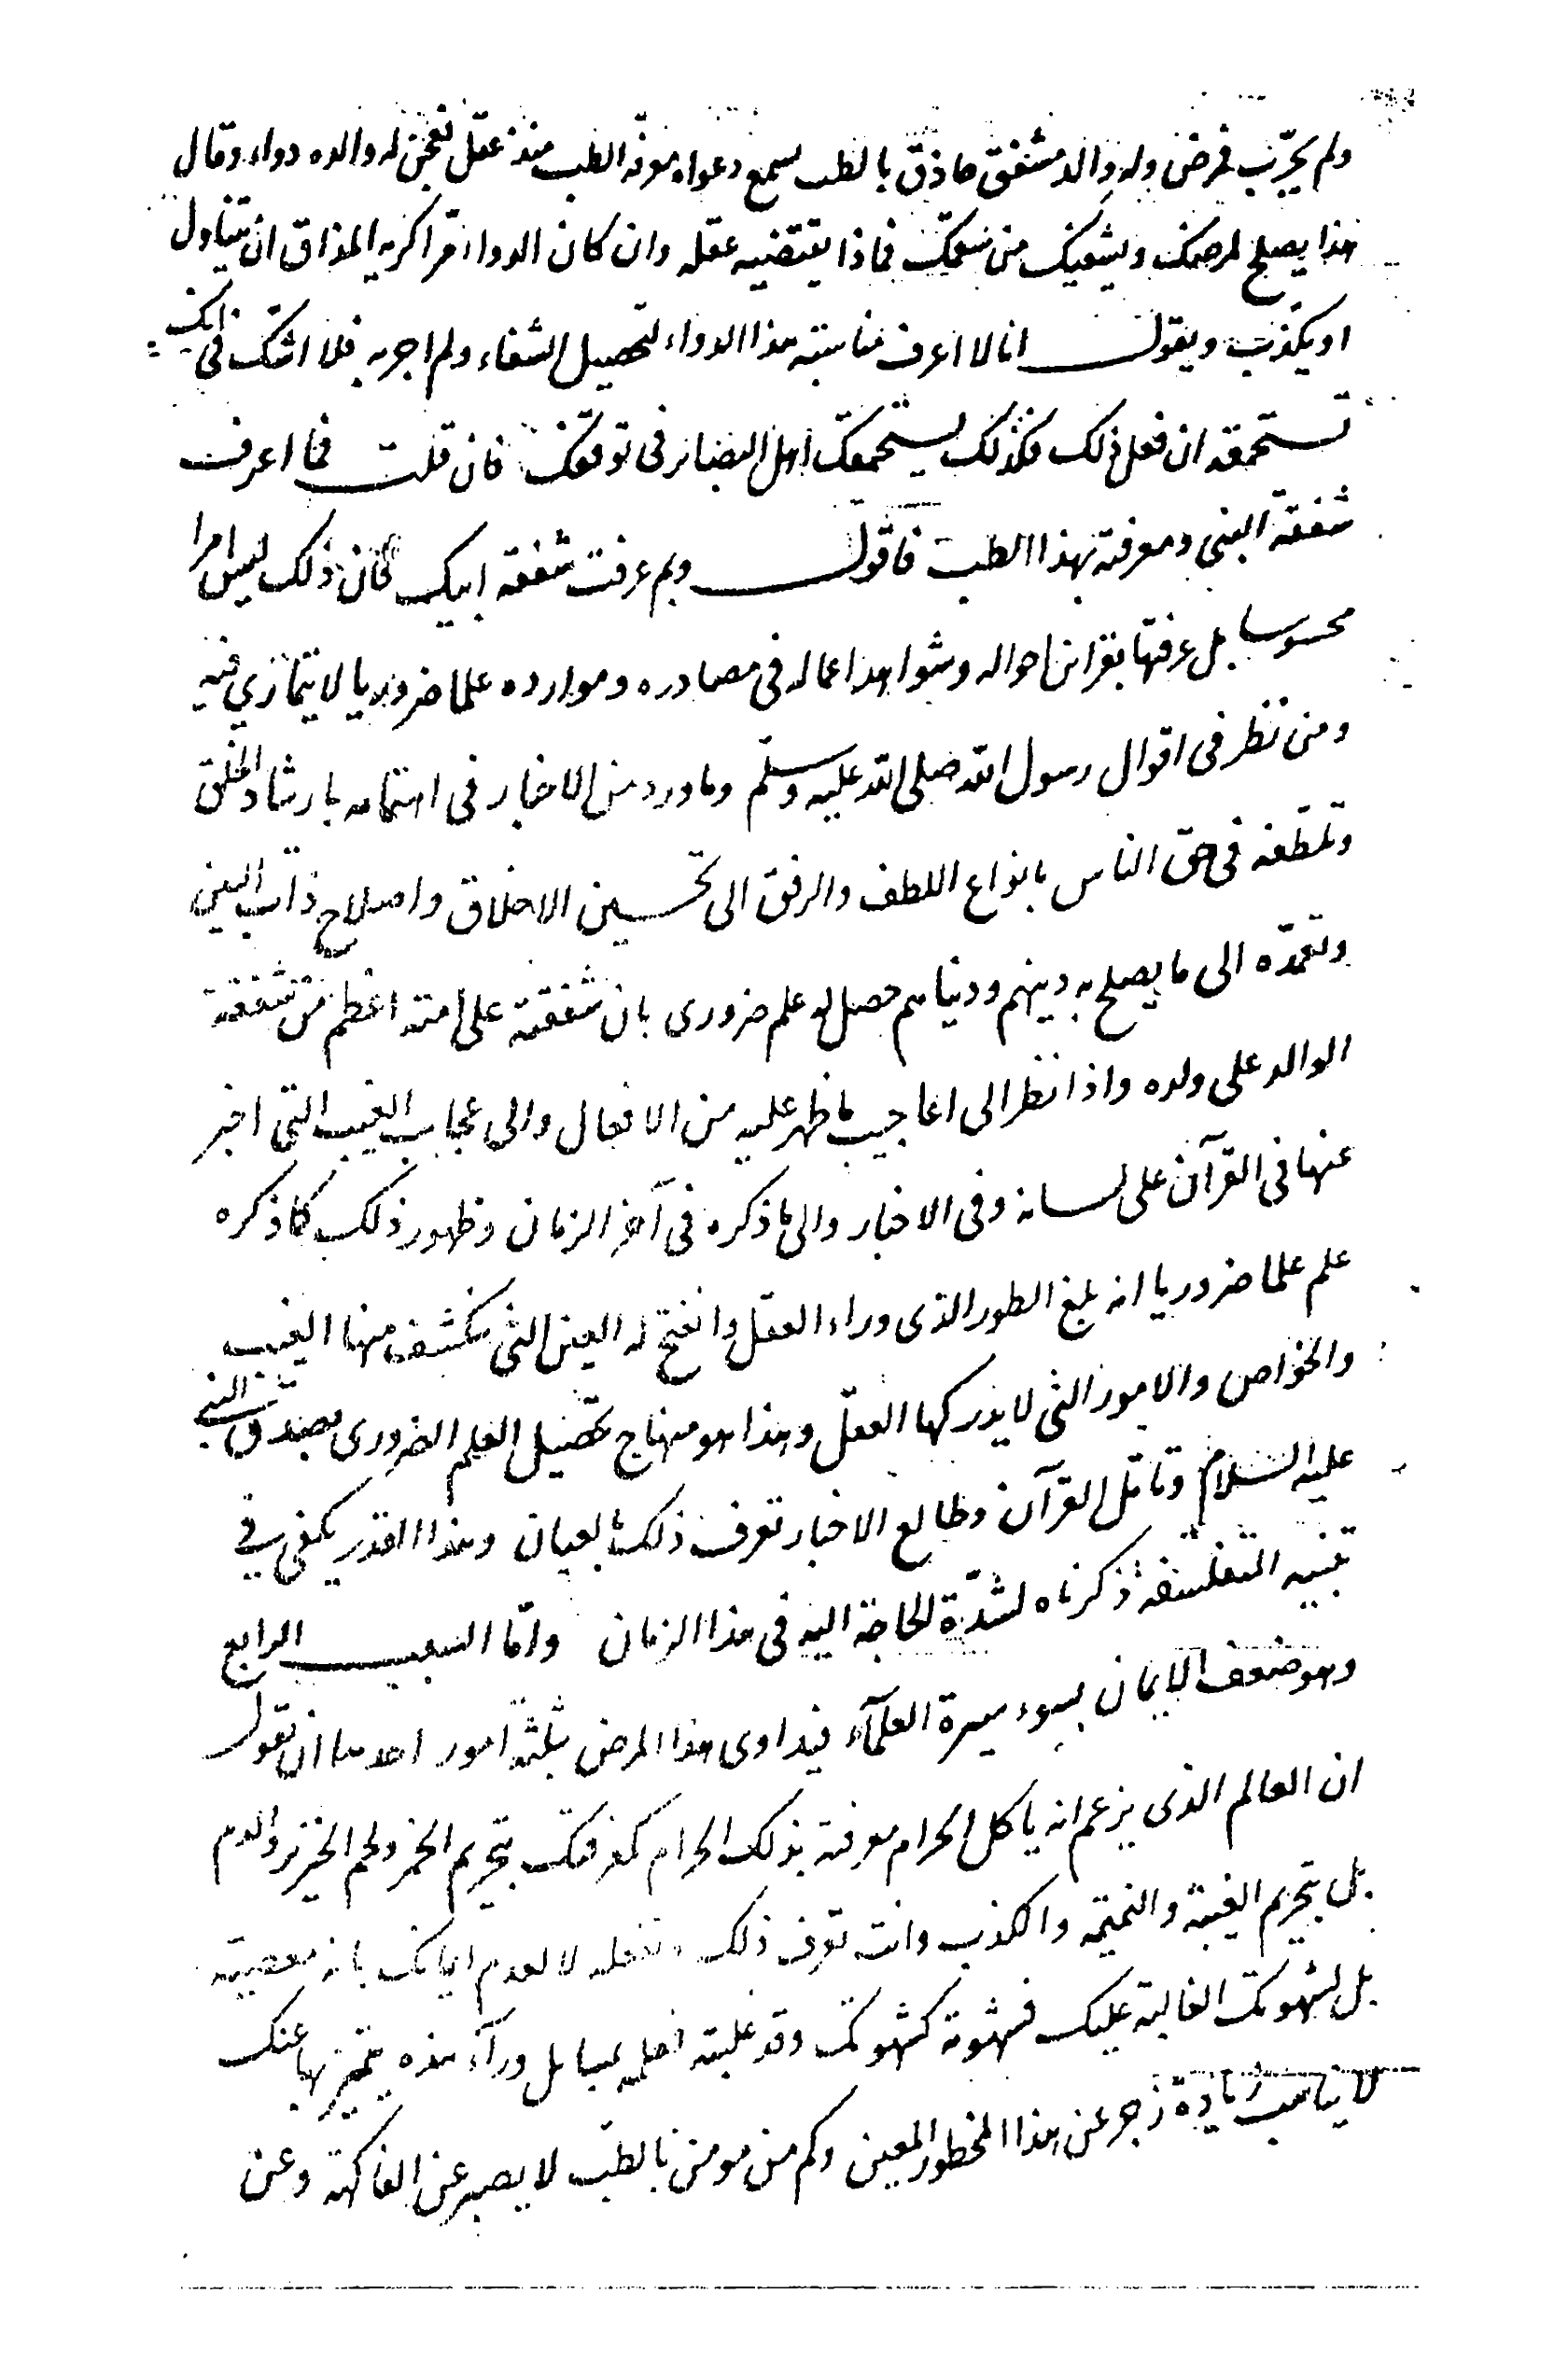 ولم يجرّب فمرض وله والد مشفق حاذق بالطب يسمع دعواه معرفة الطب منذ عقل فعجن له والده دواء وقال
هذا يصلح لمرضك ويشفيك من سقمك فماذا يقتضيه عقله وان كان الدواء مرا كريه المذاق ان يتناول
او يكذب ويقول انا لا اعرف مناسبة هذا الدواء لتحصيل الشفاء ولم اجربه فلا اشك في انك
تستحمقه ان فعل ذلك فكذلك يستحمقك اهل البصائر في توقفك فان قلت فما اعرف
شفقة النبي ومعرفته بهذا الطب فاقول وبم عرفت شفقه ابيك فان ذلك ليس امرا
محسوسا بل عرفتها بقرائن احواله وشواهد اعماله في مصادره وموارده علما ضروريا لا يتمارى فيه
ومن نظر في اقوال رسول الله صلى الله عليه وسلّم وما ورد من الاخبار في اهتمامه بارشاد الخلق
وتلطّفه في حق الناس بانواع اللطف والرفق الى تحسين الاخلاق واصلاح ذات البين
وتعمّده الى ما يصلح به دينهم ودنياهم حصل له علم ضروري بان شفقته على امته اعظم من شفقة
الوالد على ولده واذا نظر الى اعاجيب ما ظهر عليه من الافعال والى عجايب الغيب التي اخبر
عنها في القرآن على لسانه وفي الاخبار والى ما ذكره في آخر الزمان وظهور ذلك كما ذكره
علم علما ضروريا انه بلغ الطور الذي وراء العقل وانفتح له العين التي ينكشف منها الغيب
والخواص والامور التي لا يدركها العقل وهذا هو منهاج تحصيل العلم الضروري بصدق النبي
عليه السلام وتامّل القرآن وطالع الاخبار تعرف ذلك بالعيان وهذا القدر يكفي في
تنبيه المتفلسفة ذكرناه لشدّة الحاجة اليه في هذا الزمان وامّا السبب الرابع
وهو ضعف الايمان بسوء سيرة العلمآء فيداوى هذا المرض بثلثة امور احدها ان تقول
ان العالم الذي يزعم انه ياكل الحرام معرفته بذلك الحرام كمعرفتك بتحريم الخمر ولحم الخنزير والدم
بل بتحريم الغيبة والنميمة والكذب وانت تعرف ذلك وتفعله لا لعدم ايمانك بانه معصية
بل لشهوتك الغالبة عليك فشهوته كشهوتك وقد غلبته فعلمه بمسايل ورآء هذه يتميز بها عنك
لا يناسب زيادة زجر عن هذا المحظور المعين وكم من مومن بالطبّ لا يصبر عن الفاكهة وعن